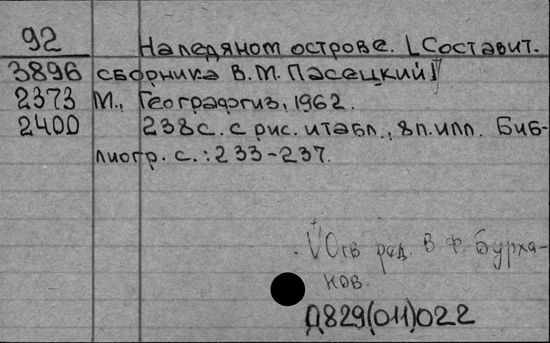 92 На ледяном острове. [Составит.
3896 сборника В.М. Пасецкий]
2373 М., Географгиз, 1962.
2400 238 с. с рис. и табл., 8 л. илл. Биб-
лиогр. с.: 233-237.
Отв ред. В Ф. Бурха-
нов.
Д829(011)022